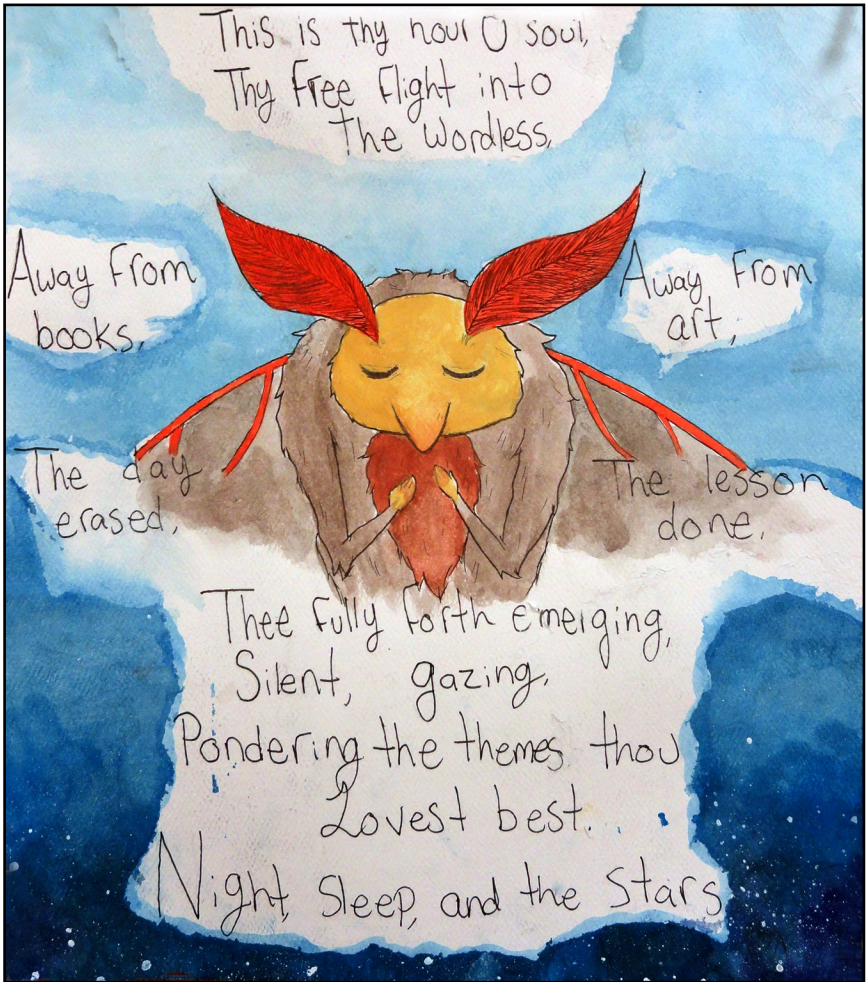 This is thy hour O soul,
Thy Free Flight into
the wordless,
Away From
books,
Away From
art,
The day
erased,
The lesson
done.
Thee fully forth emerging,
Silent, gazing,
Pondering the themes thou
Lovest best.
Night, sleep, and the stars